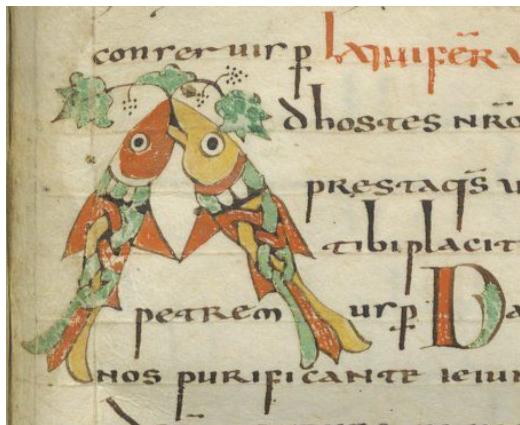 conseruis p̄
A dhostes nr̄o
prestaqs̄
tibiplacit
petrem us p̄ Da
nos purificante ieiun